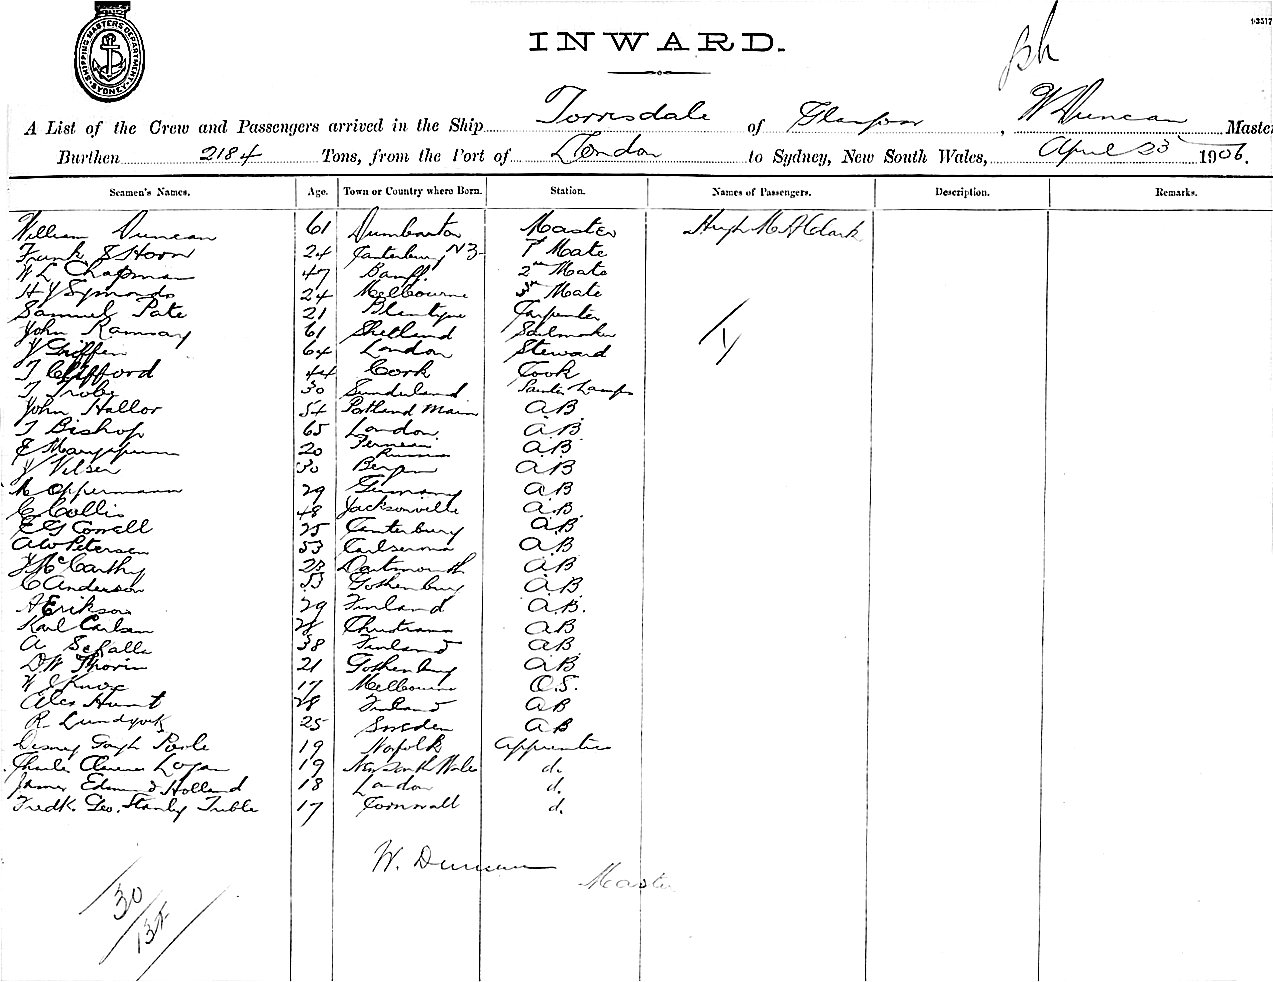 SHIPPING MASTERS DEPARTMENT SYDNEY
INWARD.
A List of the Crew and Passengers arrived in the Ship Torrisdale of Glasgow, W Duncan Master
Burthen 2184 Tons, from the Port of London to Sydney, New South Wales, April 23 1906.
Seamen's Names. Age. Town or Country where Born. Station. Names of Passengers. Description. Remarks.
William Duncan 61 Dumbarton Master Hugh
Frank J Horn 24 Canterbury NZ 1st Mate
W L Chapman 47 Banff. 2nd Mate
H Y Symonds 24 Melbourne Mate
Samuel Pate 21 Blantyre Carpenter
John Ramsay 61 Shetland Sailmaker
J Griffin 64 London Steward
T Clifford 44 Cork Cook
T 30 Sunderland Lamps
John Hallor 54 Portland Main A.B.
T Bishop 65 London. A.B.
20 Russia A.B.
J Nilsen 30 Bergen A.B.
Oppermann 29 Germany A.B.
C Collis 48 Jacksonville A.B.
E G Connell 25 Canterbury A.B.
A W Petersen 53 Carlscrona A.B.
J McCarthy Dartmouth A.B.
C Anderson 53 Gothenburg A.B.
A Erikson 29 Finland A.B.
Karl Carlsen A.B.
A 38 Finland A.B.
D W Thorin 21 Gothenburg A.B.
W J Knox 17 Melbourne O.S.
Alex Hunt 28 Finland AB
R Lundqvist 25 Sweden AB
Gough Poole 19 Norfolk Apprentice
Charles Clarence Logan 19 New South Wales d.
James Edmund Holland 18 London d.
Fredk. Geo. Stanly Treble 17 Cornwall d.
W. Duncan
Master
30